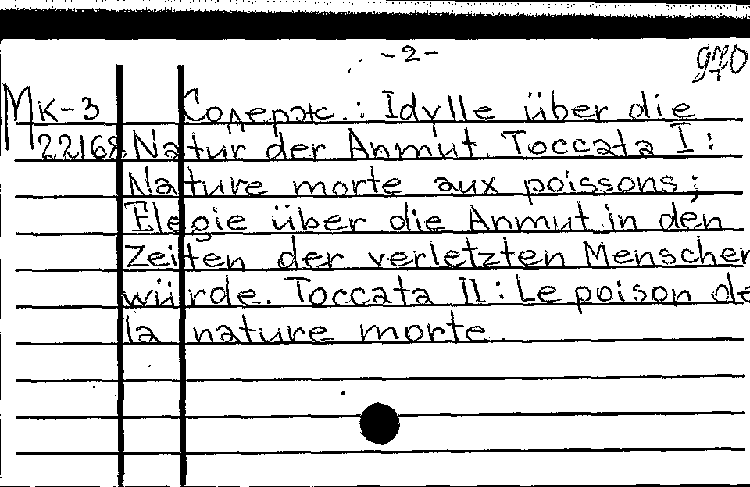 -2-
970
МК-3 Содерж.: Idylle über die
22168 Natur der Anmut. Toccata I:
Nature morte aux poissons;
Elegie über die Anmut in den
Zeiten der verletzten Menschen
würde. Toccata II: Le poison de
la nature morte.